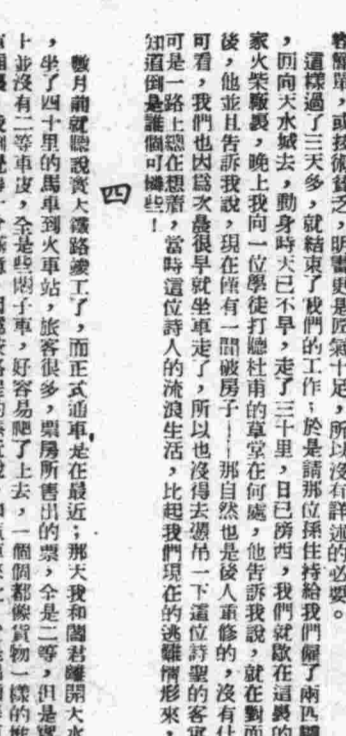 簡單，或技術貧乏，明書更是匠氣十足，所以沒有詳述的必要。
這樣過了三天多，就結束了我們的工作；於是請那位孫住持給我們僱了兩匹
，回向天水城去，動身時天已不早，走了三十里，日已滂西，我們就歇在這裏的
家火柴廠裏，晚上我向一位學徒打聽杜甫的草堂在何處，他告訴我說，就在對面
後，他並且告訴我說，現在僅有一間破房子——那自然也是後人重修的，沒有什
可看，我們也因爲次晨很早就坐車走了，所以也沒得去憑吊一下這位詩聖的客寓
可是一路上總在想着，當時這位詩人的流浪生活，比起我們現在的逃難情形來，
知道倒是誰個可憐些！
四
數月前就聽說寶天鐵路竣工了，而正式通車是在最近；那天我和閻君離開天水
，坐了四十里的馬車到火車站，旅客很多，票房所售出的票，全是二等，但是實
十並沒有二等車皮，全是些悶子車，好容易爬了上去，一個個都像貨物一樣的堆